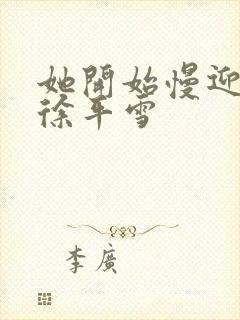 她開始慢迎
徐平雪
李廣